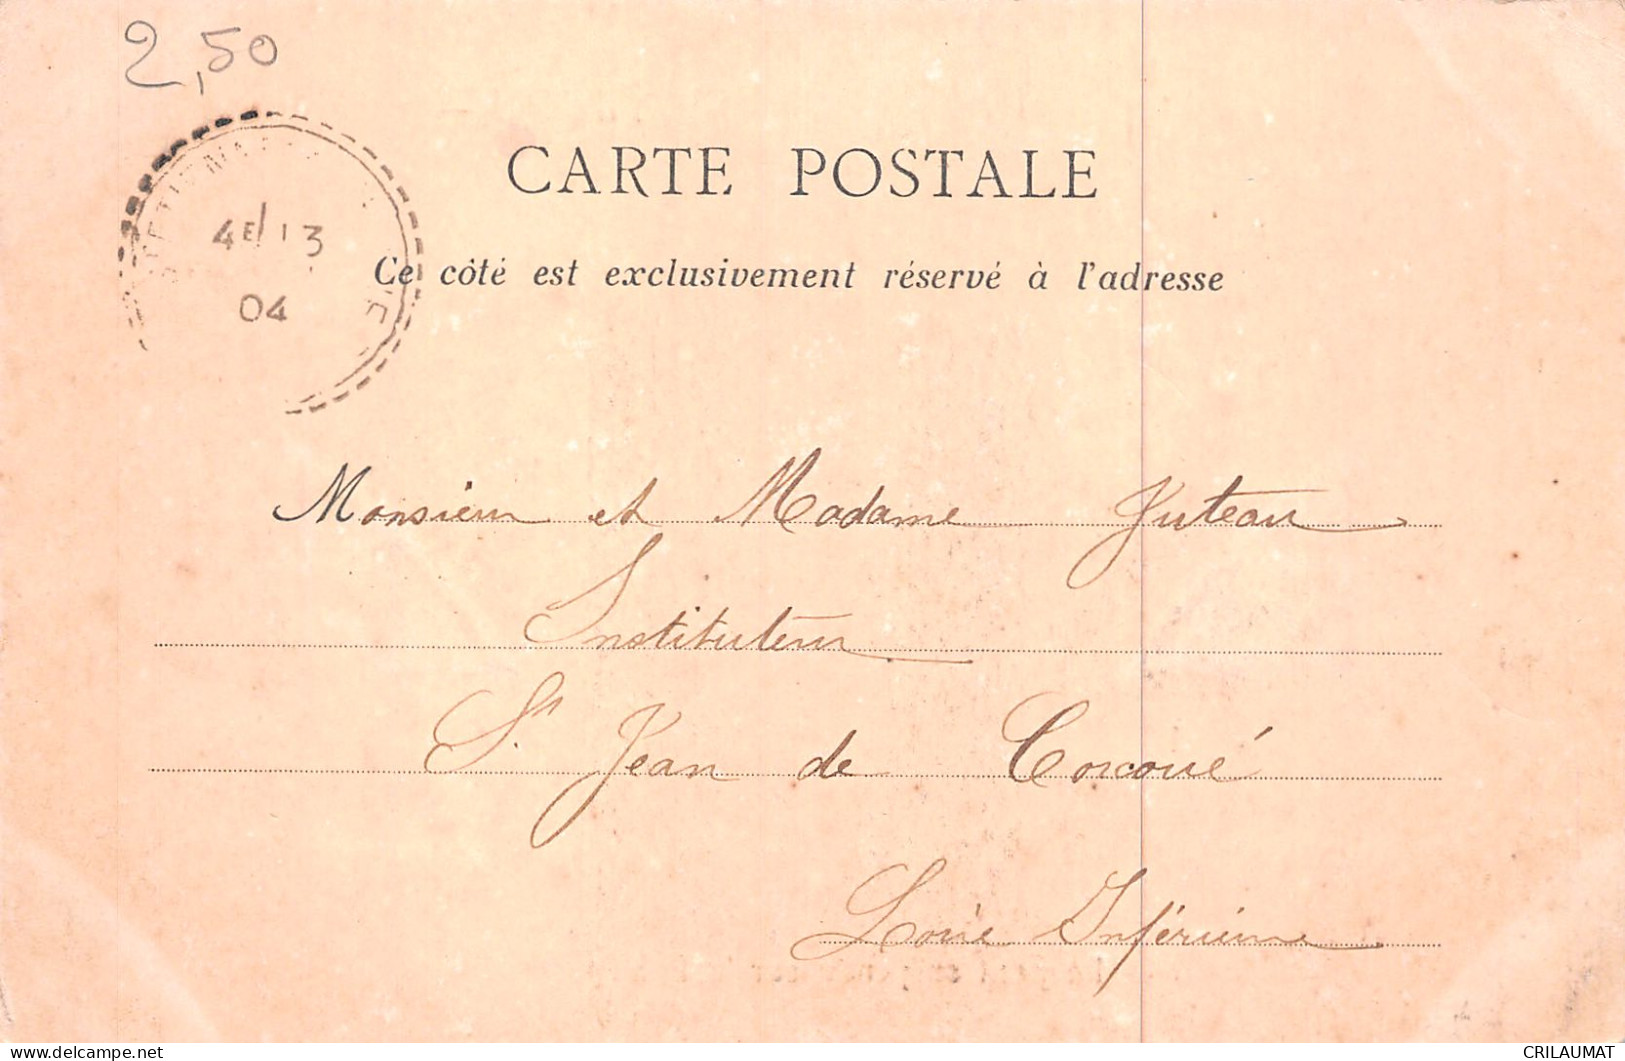 2,50
CARTE POSTALE
4E 13
04
Ce côté est exclusivement réservé à l'adresse
Monsieur et Madame Juteau
Instituteur
St Jean de Corcoué
Loire Inférieure
CRILAUMAT